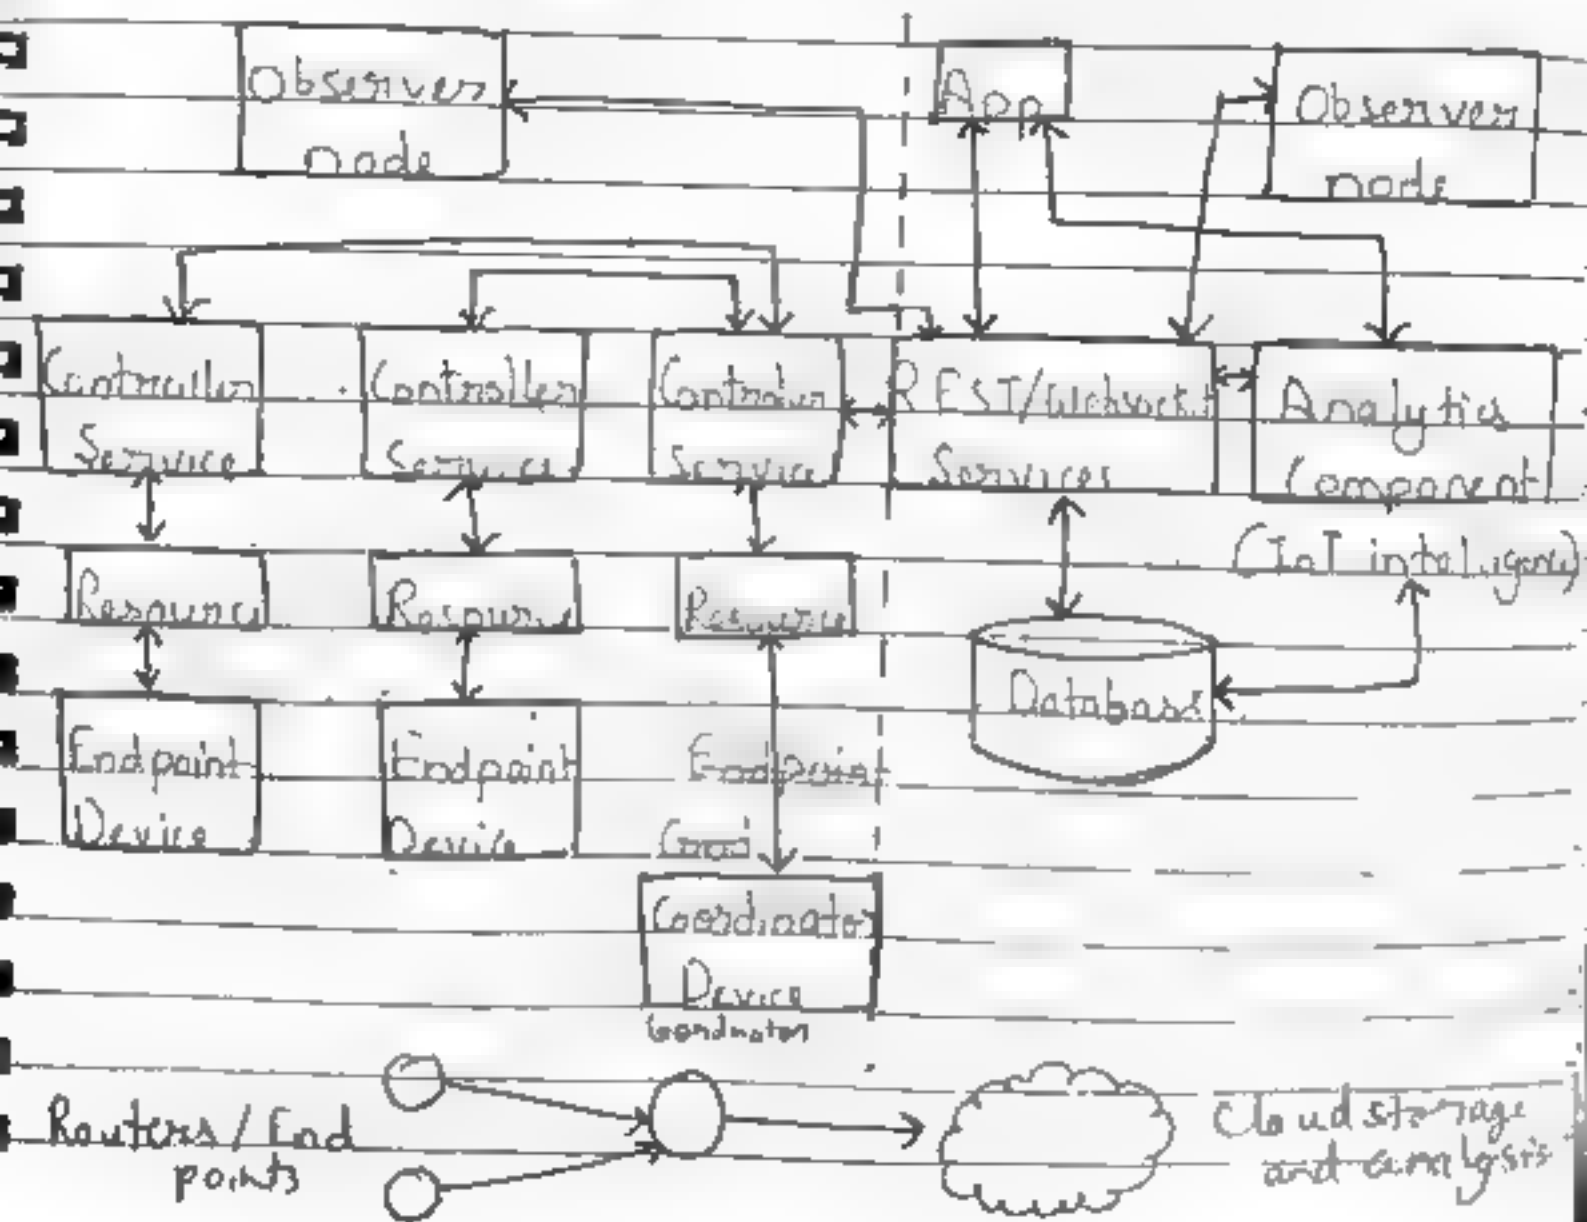 Observer
node
App
Observer
node
Controller
Service
Controller
Service
Controller
Service
REST/Websocket
Services
Analytics
Component
(IoT inteligence)
Resource
Resource
Resource
Database
Endpoint
Device
Endpoint
Device
Endpoint
Cood
Coordinator
Device
Coordinator
Routers/End
points
Cloud storage
and analysis